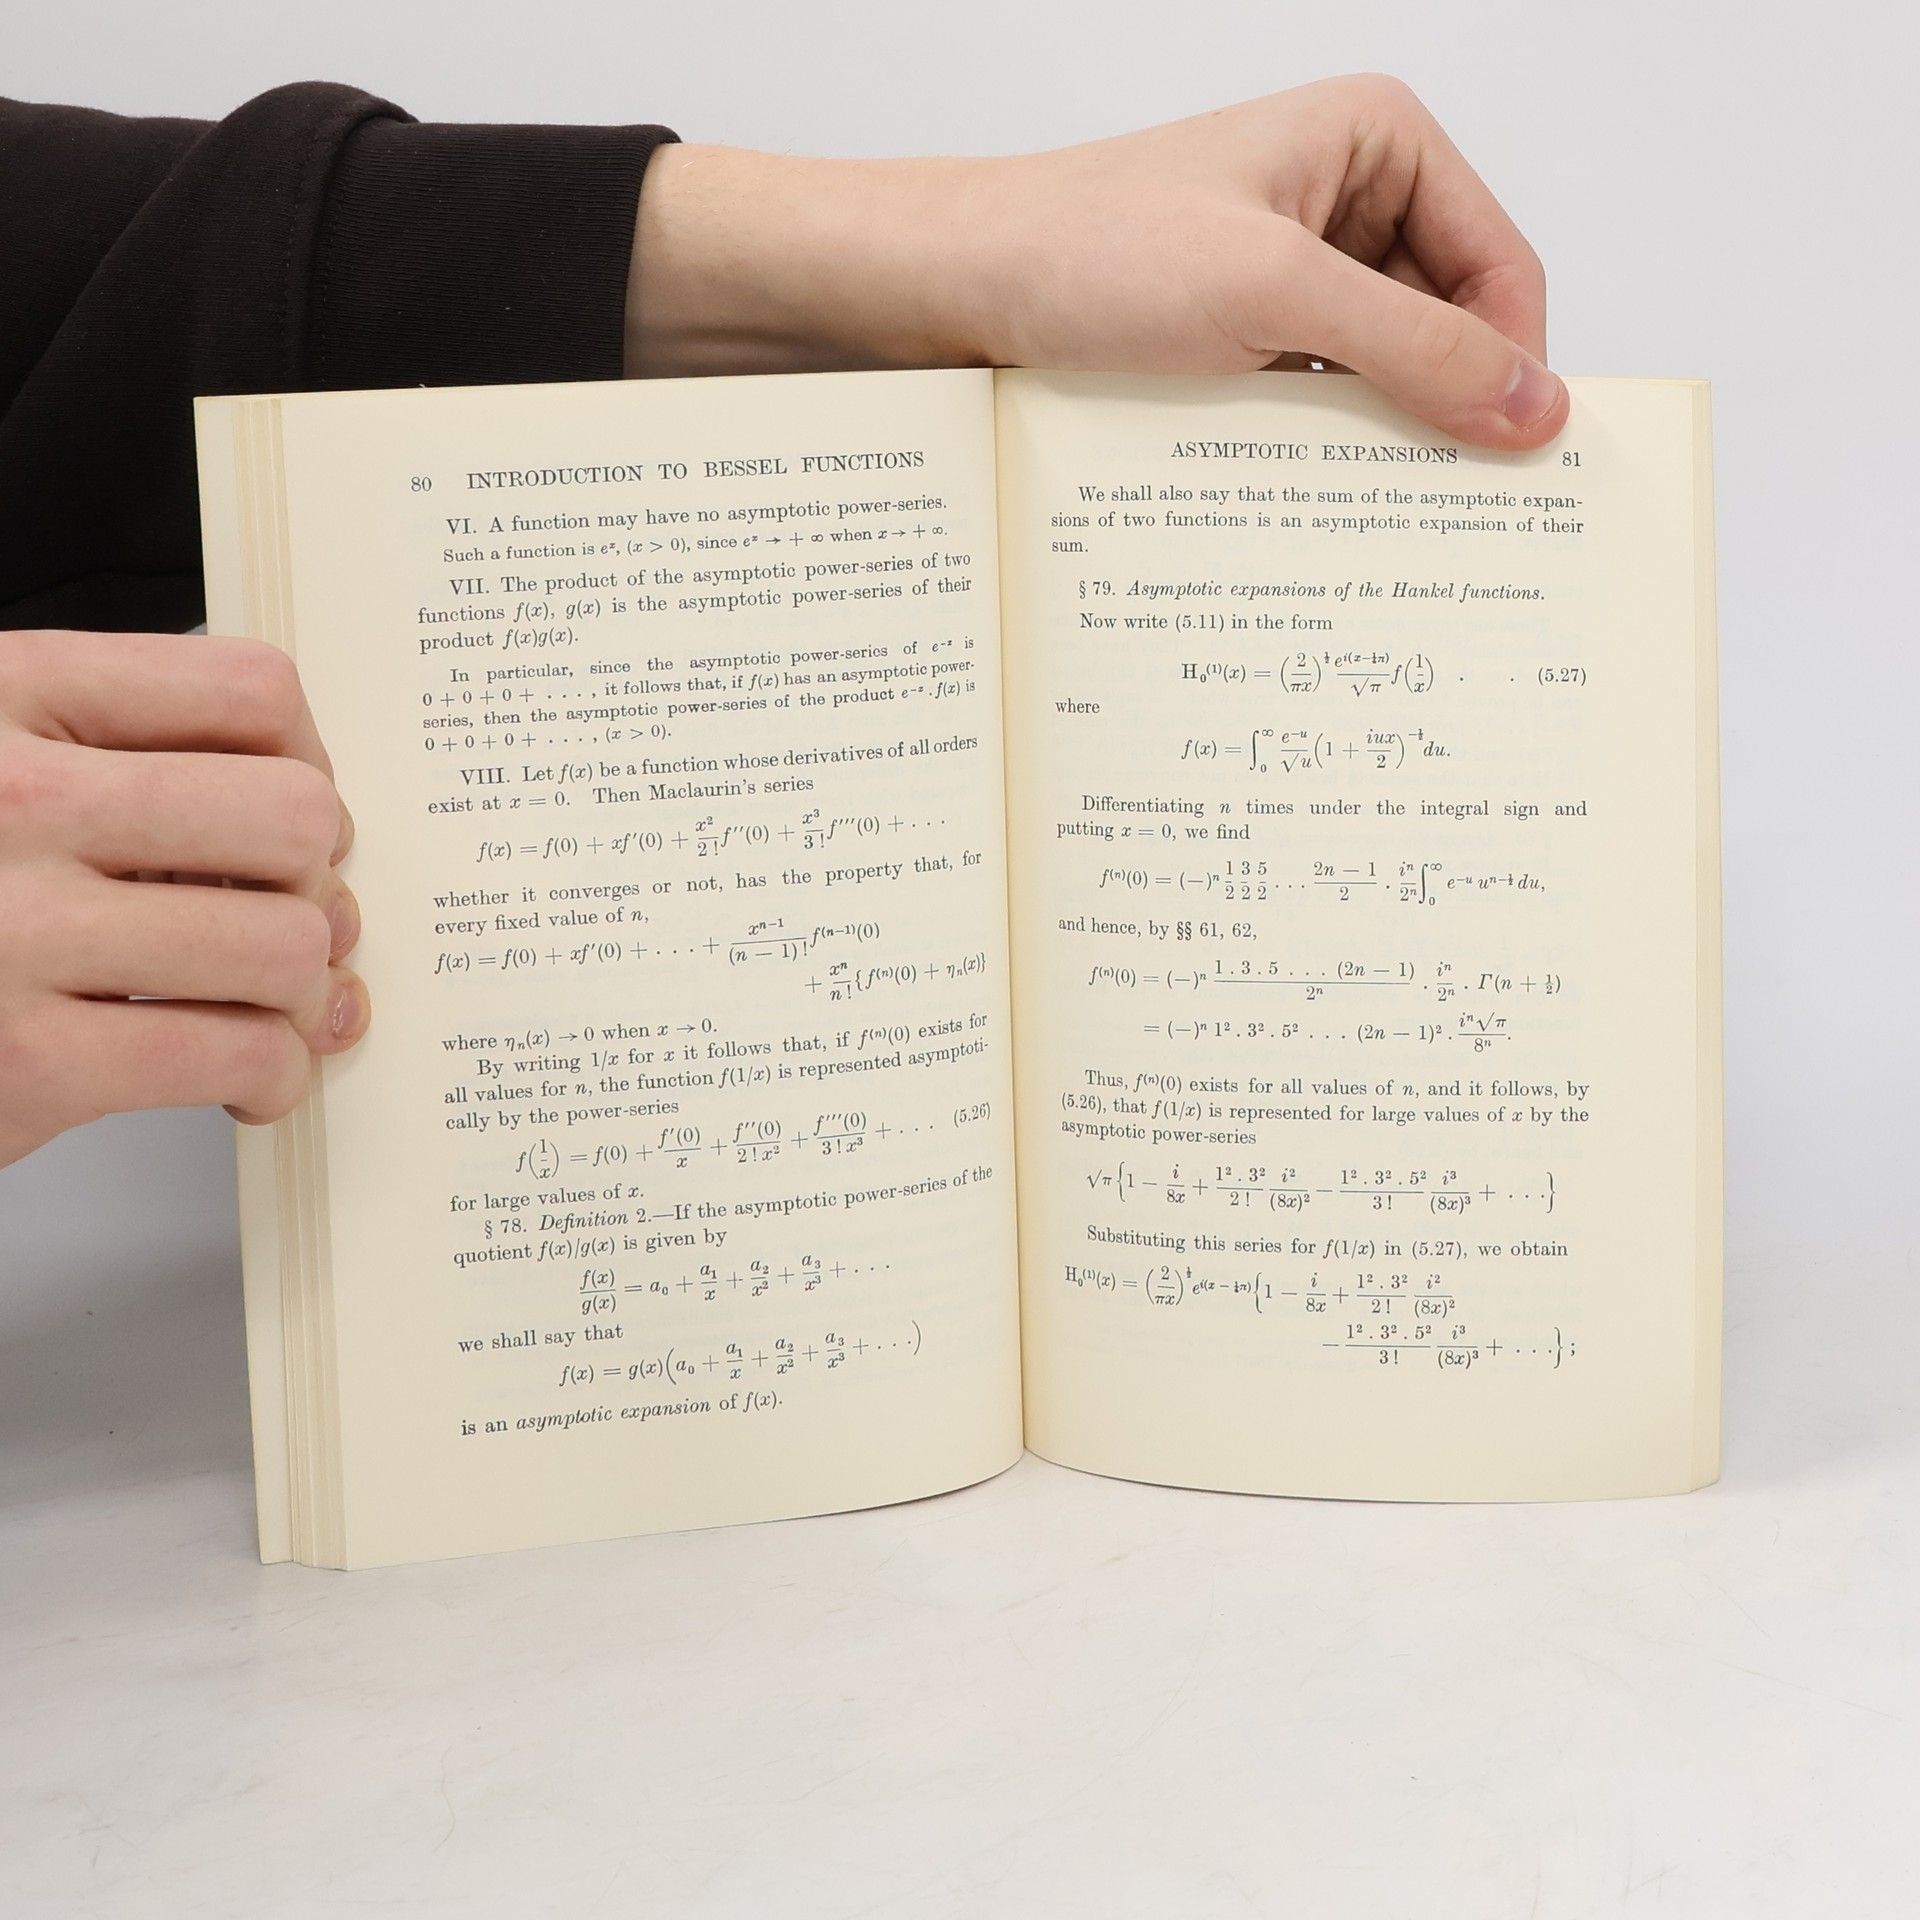 80 INTRODUCTION TO BESSEL FUNCTIONS
VI. A function may have no asymptotic power-series.
Such a function is eˣ, (x > 0), since eˣ → + ∞ when x → + ∞.
VII. The product of the asymptotic power-series of two
functions f(x), g(x) is the asymptotic power-series of their
product f(x)g(x).
In particular, since the asymptotic power-series of e⁻ˣ is
0 + 0 + 0 + . . . , it follows that, if f(x) has an asymptotic power-
series, then the asymptotic power-series of the product e⁻ˣ . f(x) is
0 + 0 + 0 + . . . , (x > 0).
VIII. Let f(x) be a function whose derivatives of all orders
exist at x = 0. Then Maclaurin's series
f(x) = f(0) + xf′(0) + x²/2! f″(0) + x³/3! f‴(0) + . . .
whether it converges or not, has the property that, for
every fixed value of n,
f(x) = f(0) + xf′(0) + . . . + xⁿ⁻¹/(n − 1)! f⁽ⁿ⁻¹⁾(0)
+ xⁿ/n! {f⁽ⁿ⁾(0) + ηₙ(x)}
where ηₙ(x) → 0 when x → 0.
By writing 1/x for x it follows that, if f⁽ⁿ⁾(0) exists for
all values for n, the function f(1/x) is represented asymptoti-
cally by the power-series
f(1/x) = f(0) + f′(0)/x + f″(0)/2! x² + f‴(0)/3! x³ + . . . (5.26)
for large values of x.
§ 78. Definition 2.—If the asymptotic power-series of the
quotient f(x)/g(x) is given by
f(x)/g(x) = a₀ + a₁/x + a₂/x² + a₃/x³ + . . .
we shall say that
f(x) = g(x)(a₀ + a₁/x + a₂/x² + a₃/x³ + . . .)
is an asymptotic expansion of f(x).
ASYMPTOTIC EXPANSIONS 81
We shall also say that the sum of the asymptotic expan-
sions of two functions is an asymptotic expansion of their
sum.
§ 79. Asymptotic expansions of the Hankel functions.
Now write (5.11) in the form
H₀⁽¹⁾(x) = (2/πx)^½ e^{i(x−¼π)}/√π f(1/x) . . (5.27)
where
f(x) = ∫₀^∞ e⁻ᵘ/√u (1 + iux/2)^{−½} du.
Differentiating n times under the integral sign and
putting x = 0, we find
f⁽ⁿ⁾(0) = (−)ⁿ 1/2 3/2 5/2 . . . (2n − 1)/2 . iⁿ/2ⁿ ∫₀^∞ e⁻ᵘ u^{n−½} du,
and hence, by §§ 61, 62,
f⁽ⁿ⁾(0) = (−)ⁿ 1 . 3 . 5 . . . (2n − 1)/2ⁿ . iⁿ/2ⁿ . Γ(n + ½)
= (−)ⁿ 1² . 3² . 5² . . . (2n − 1)² . iⁿ√π/8ⁿ.
Thus, f⁽ⁿ⁾(0) exists for all values of n, and it follows, by
(5.26), that f(1/x) is represented for large values of x by the
asymptotic power-series
√π{1 − i/8x + 1² . 3²/2! i²/(8x)² − 1² . 3² . 5²/3! i³/(8x)³ + . . .}
Substituting this series for f(1/x) in (5.27), we obtain
H₀⁽¹⁾(x) = (2/πx)^½ e^{i(x − ¼π)}{1 − i/8x + 1² . 3²/2! i²/(8x)²
− 1² . 3² . 5²/3! i³/(8x)³ + . . .};